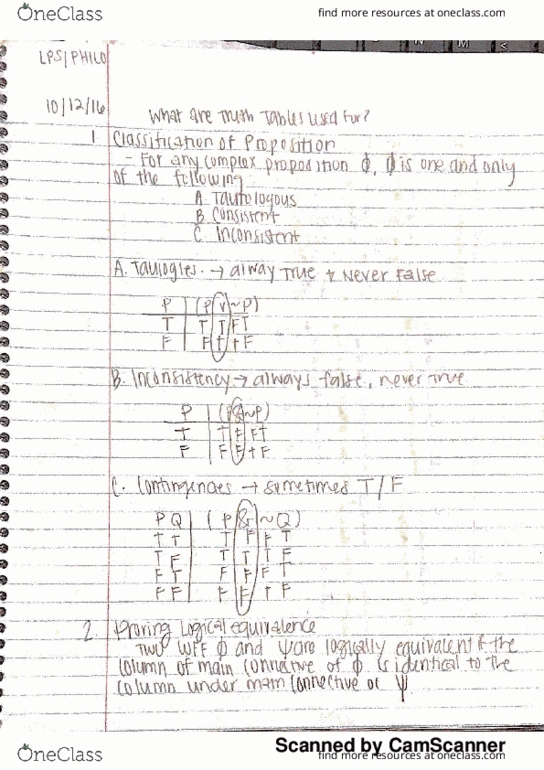 OneClass
find more resources at oneclass.com
LPS/PHILO
10/12/16 What are Truth Tables used for?
1 Classification of Proposition
- For any complex proposition ϕ, ϕ is one and only
of the following
A. Tautologous
B. Consistent
C. Inconsistent
A. Taulogies. → alway True + Never False
P | (P v ~P)
T | T T F T
F | F t t F
B. Inconsistency → always false, never true
P | (P & ~P)
T | T F F T
F | F F t F
C. Contingencies → sometimes T/F
P Q | (P & ~Q)
T T | T F F T
T F | T T T F
F T | F F F T
F F | F F T F
2. Proving Logical equivalence
Two WFF ϕ and ψ are logically equivalent if the
column of main connective of ϕ is identical to the
column under main connective of ψ
Scanned by CamScanner
OneClass
find more resources at oneclass.com